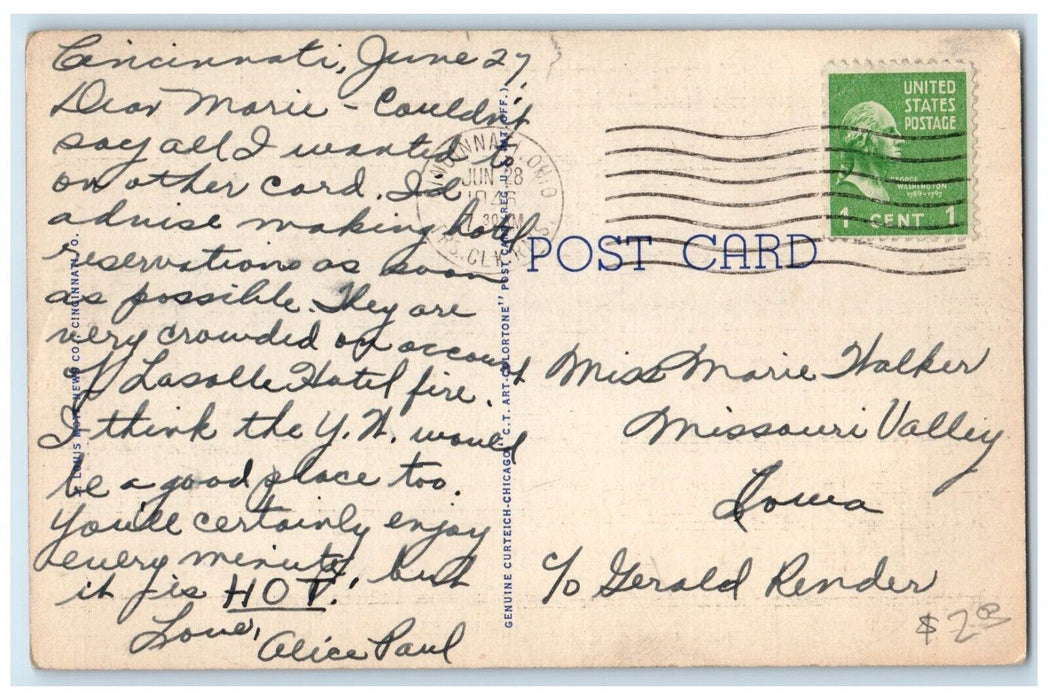 Cincinnati, June 27
Dear Marie - Couldn't
say all I wanted to
on other card. I'd
advise making hotel
reservations as soon
as possible. They are
very crowded on account
of Lasalle Hotel fire.
I think the Y.W. would
be a good place too.
You'll certainly enjoy
every minute, but
it is HOT.
Love,
Alice Paul
NEWS CO., CINCINNATI, O.
GENUINE CURTEICH-CHICAGO "C.T. ART-COLORTONE" POST CARD
CINCINNATI, OHIO
JUN 28
POST CARD
UNITED
STATES
POSTAGE
GEORGE
WASHINGTON
1789-1797
1 CENT 1
Miss Marie Walker
Missouri Valley
Iowa
c/o Gerald Render